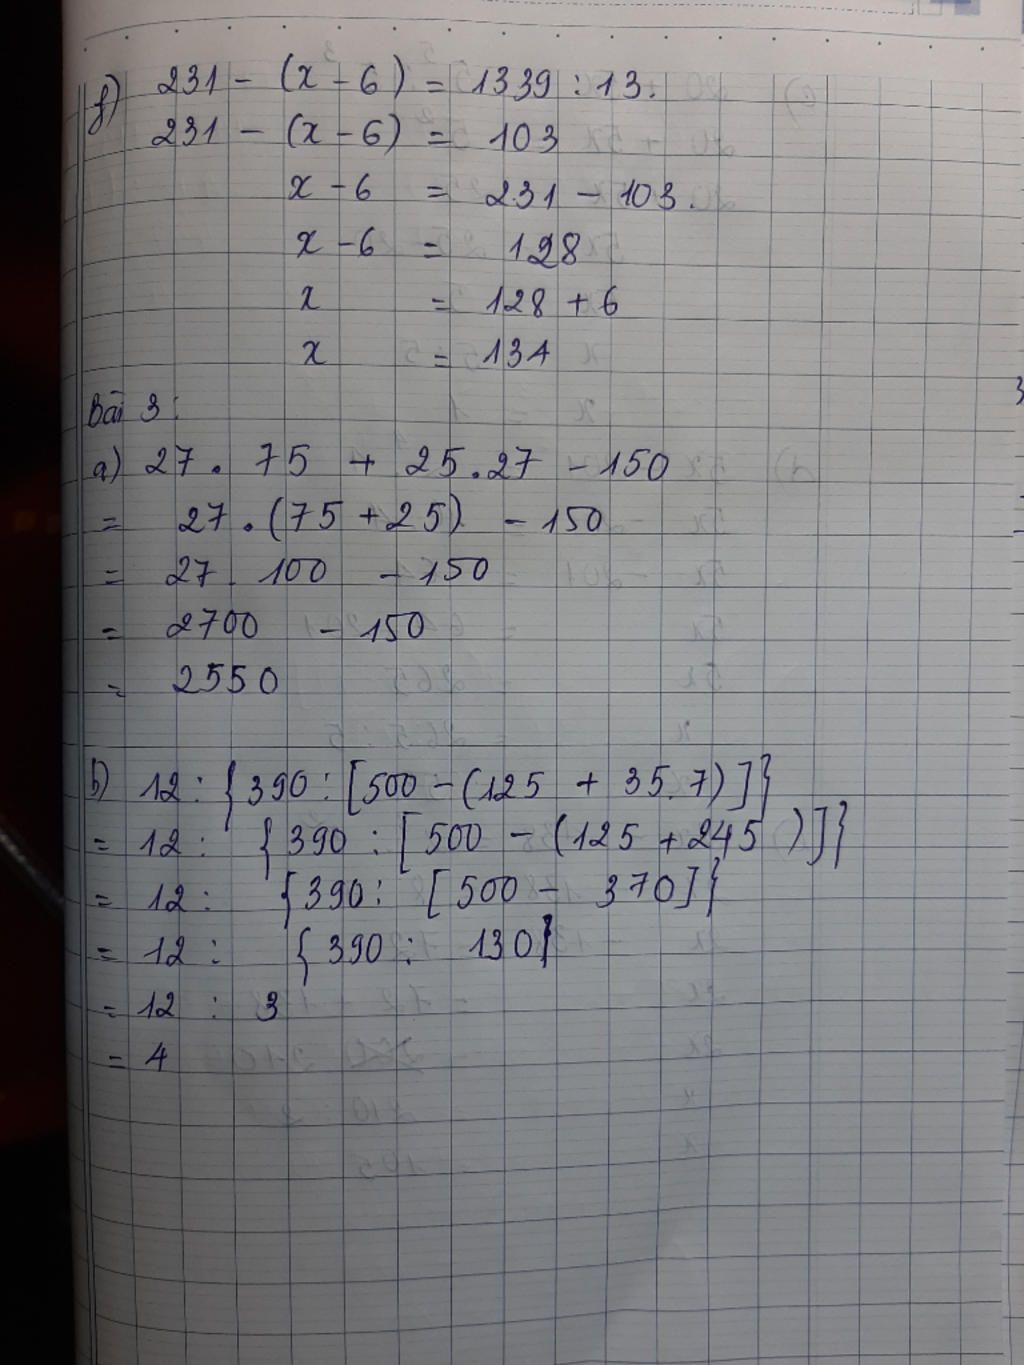 f) 231 - (x - 6) = 1339 : 13.
231 - (x - 6) = 103
x - 6 = 231 - 103.
x - 6 = 128
x = 128 + 6
x = 134
Bài 3:
a) 27. 75 + 25.27 - 150
= 27.(75 + 25) - 150
= 27. 100 - 150
= 2700 - 150
= 2550
b) 12 : {390 : [500 - (125 + 35.7)]}
= 12 : {390 : [500 - (125 + 245)]}
= 12 : {390 : [500 - 370]}
= 12 : {390 : 130}
= 12 : 3
= 4